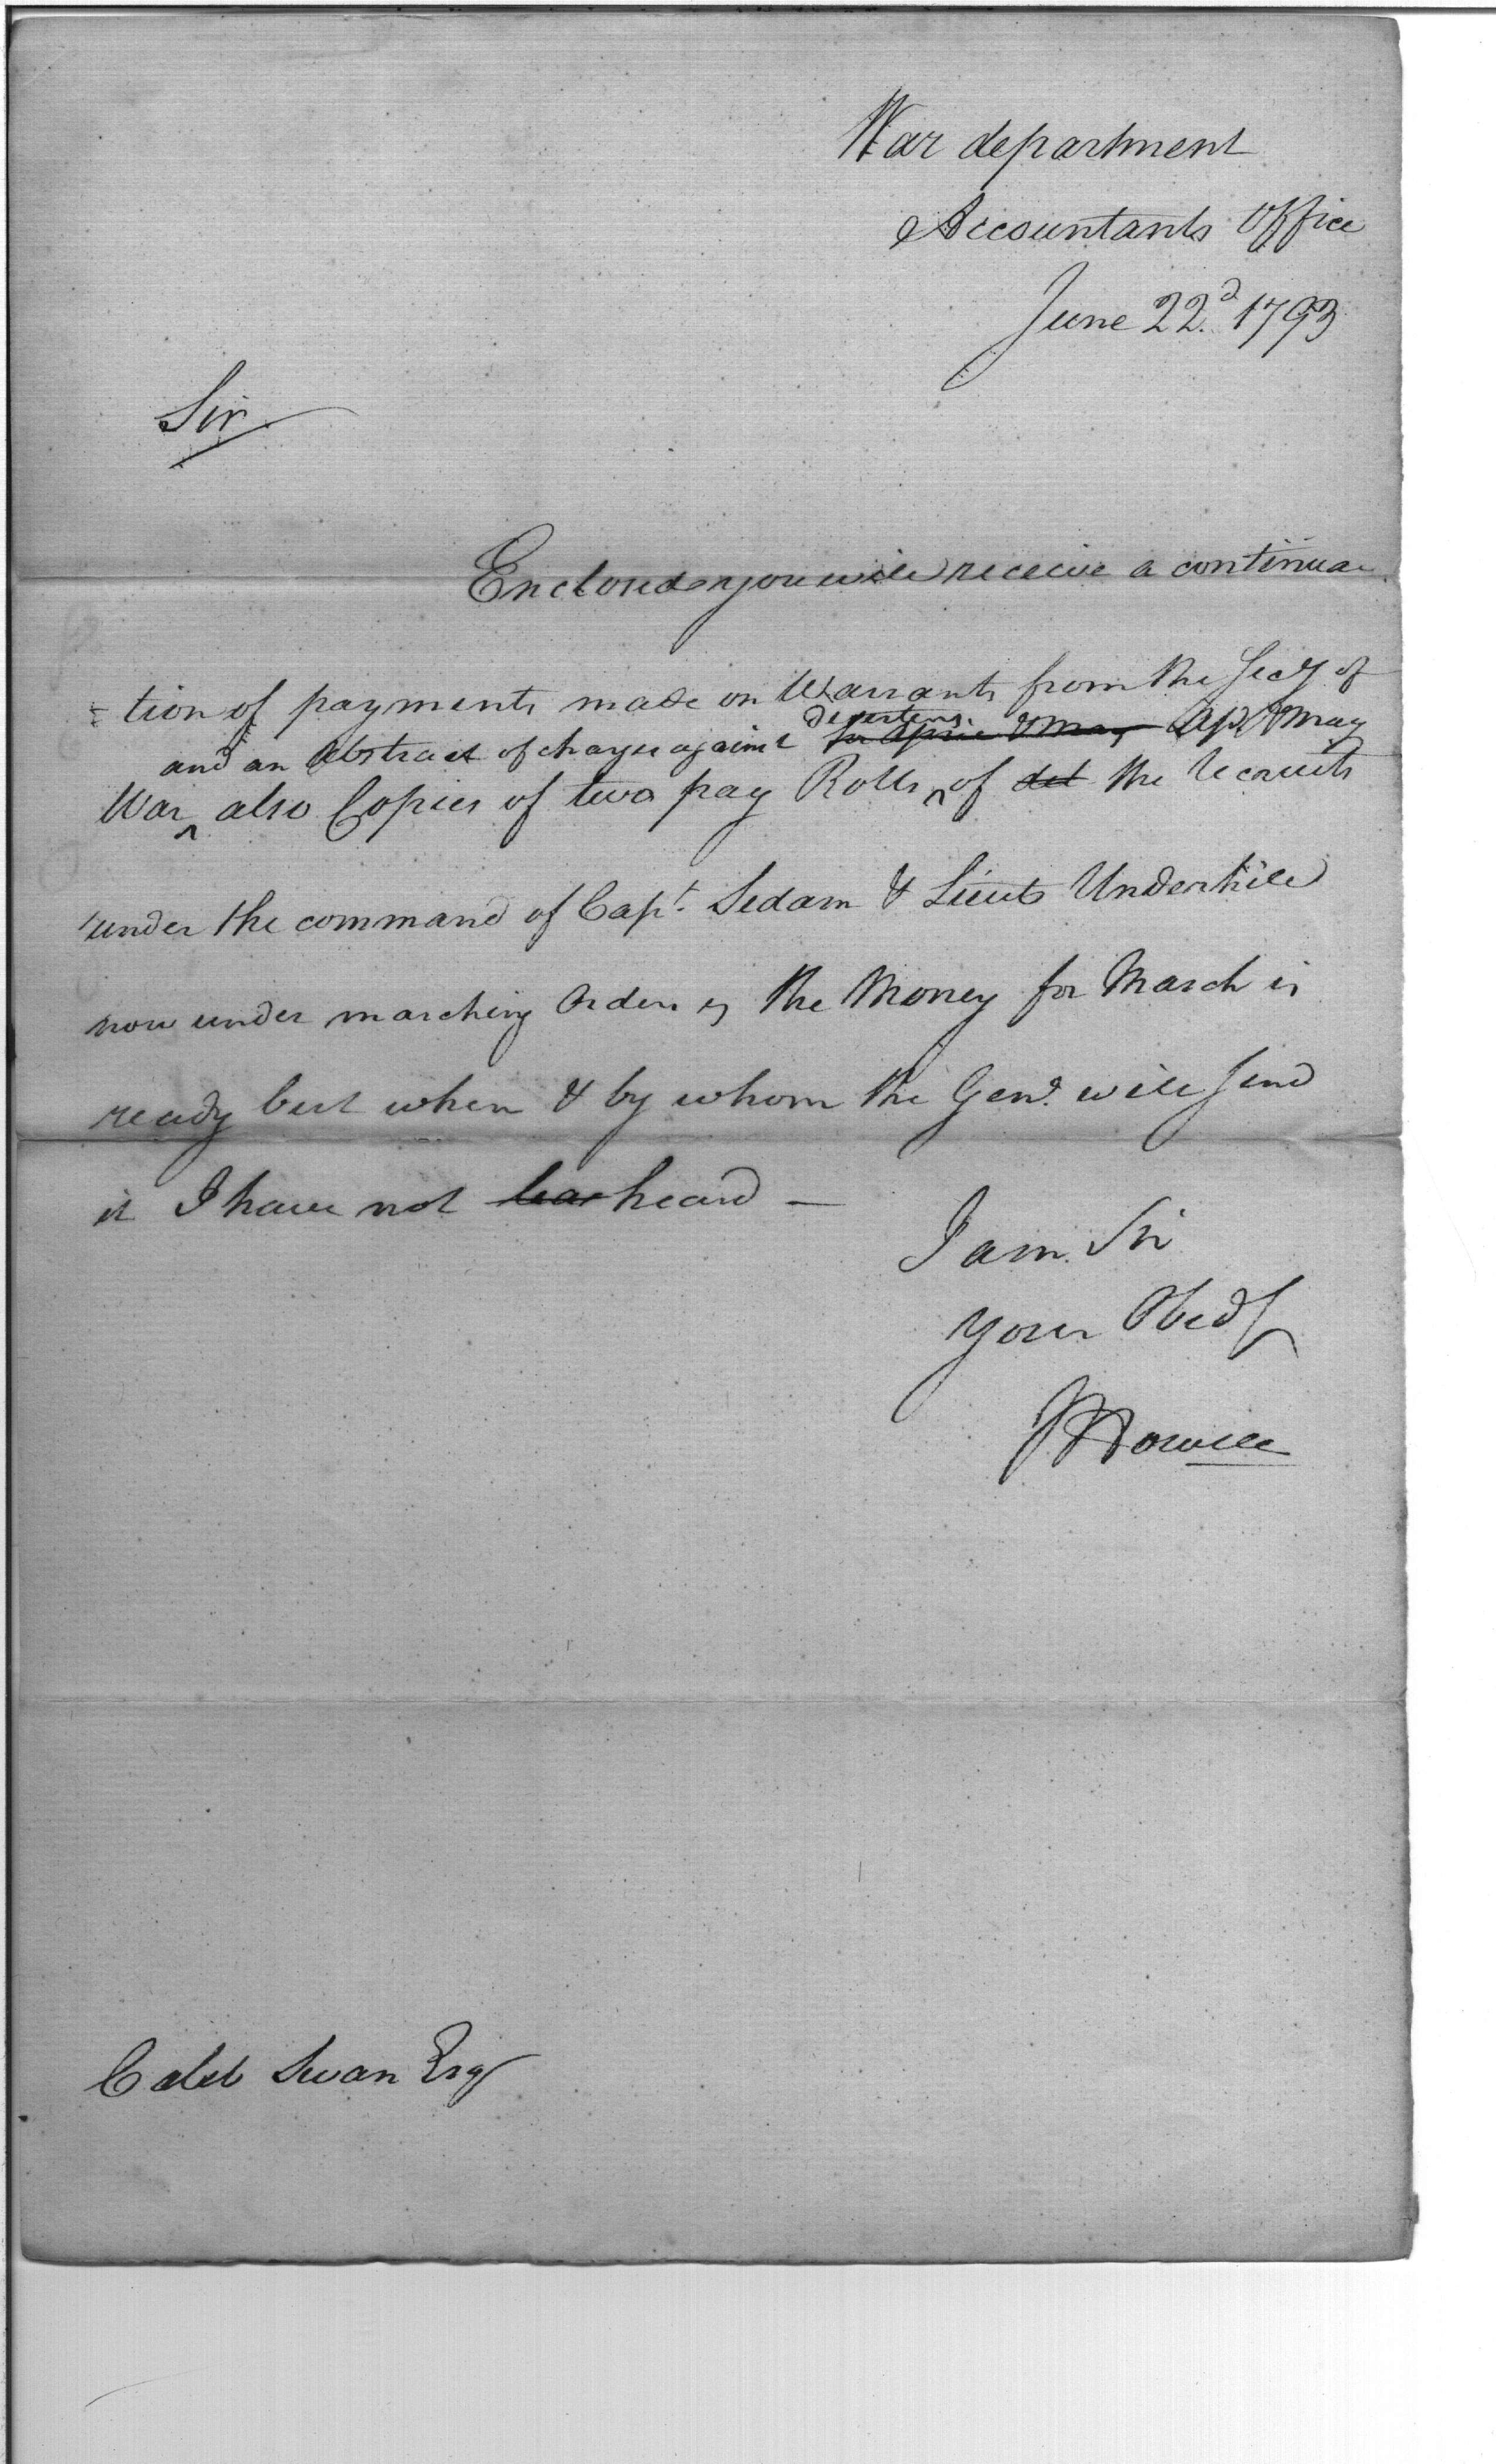 War department
Accountants Office
June 22d. 1793
Sir
Enclosed you will receive a continua
=tion of payments made on Warrants from the Secy of
and an Abstract of charges against deserters. for April & May Apl. & May
War ^ also Copies of two pay Rolls ^ of det the Recruits
under the command of Capt. Sedam & Lieut Underhill
now under marching Orders, the Money for March is
ready but when & by whom the Genl. will send
it I have not hea heard —
I am Sir
your Obedt
J Howell
Caleb Swan Esq